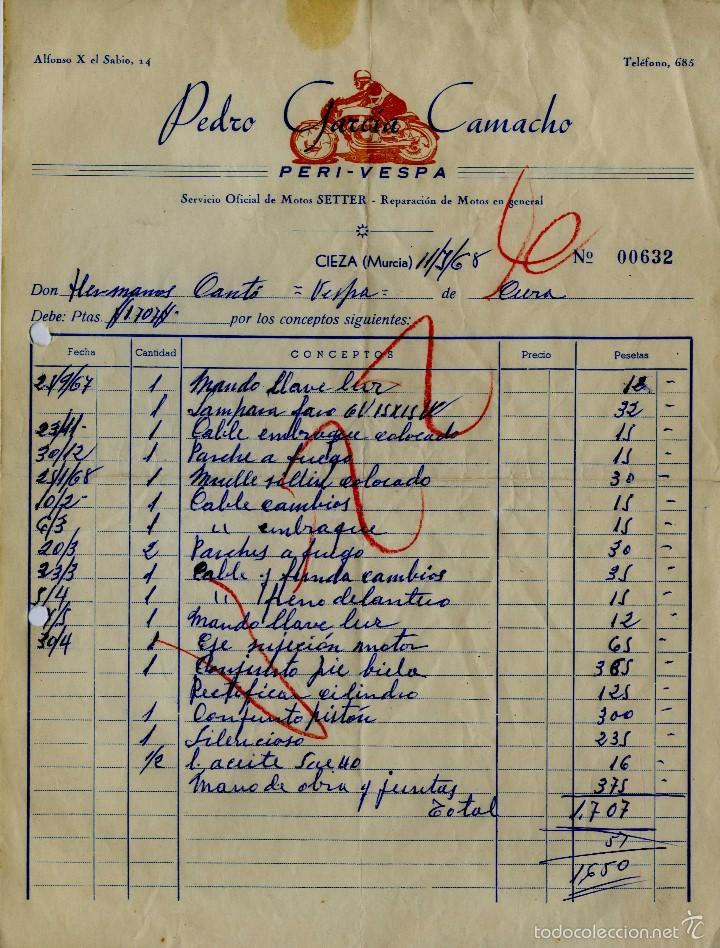 Alfonso X el Sabio, 14 Teléfono, 685
Pedro García Camacho
PERI-VESPA
Servicio Oficial de Motos SETTER - Reparación de Motos en general
CIEZA (Murcia) 11/5/68 Nº 00632
Don Hermanos Cantó =Vespa= de
Debe: Ptas. #1.707#- por los conceptos siguientes:
Fecha Cantidad CONCEPTOS Precio Pesetas
21/9/67 1 Mando llave luz 12 -
1 Lampara faro 6V 15X15W 32 -
23/11- 1 Cable embrague colocado 15 -
30/12 1 Parche a fuego 15 -
25/1/68 1 Muelle sillin colocado 30 -
10/2- 1 Cable cambios 15 -
6/3 1 " embrague 15 -
20/3 2 Parches a fuego 30 -
23/3 1 Cable y funda cambios 35 -
5/4 1 " freno delantero 15 -
1 Mando llave luz 12 -
30/4 1 Eje sujeción motor 65 -
1 Conjunto pie biela 365 -
Rectificar cilindro 125 -
1 Conjunto pistón 300 -
1 Silencioso 235 -
1/2 l. aceite Sae 40 16 -
Mano de obra y juntas 375 -
Total 1.707
57
1,650
todocoleccion.net